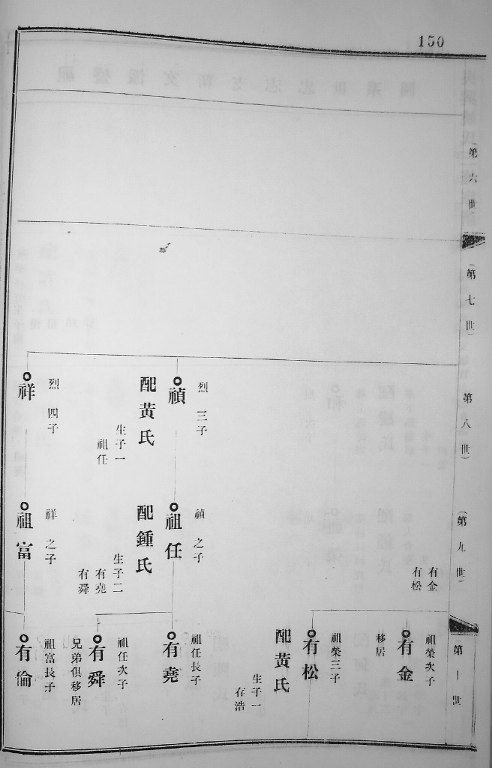 150
第六世
第七世
第八世
第九世
第十世
禎
烈三子
配黃氏
生子一
祖任
祥
烈四子
有金
有松
祖任
禎之子
配鍾氏
生子二
有堯
有舜
祖富
祥之子
有金
祖榮次子
移居
有松
祖榮三子
配黃氏
生子一
存浩
有堯
祖任長子
有舜
祖任次子
兄弟俱移居
有倫
祖富長子